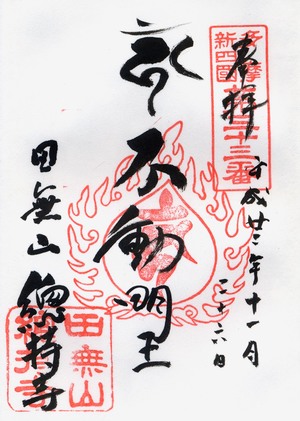 多摩
新四國
第三十三番
奉拝
平成廿二年十一月
二十六日
不動明王
田無山
總持寺
田無山
總持寺